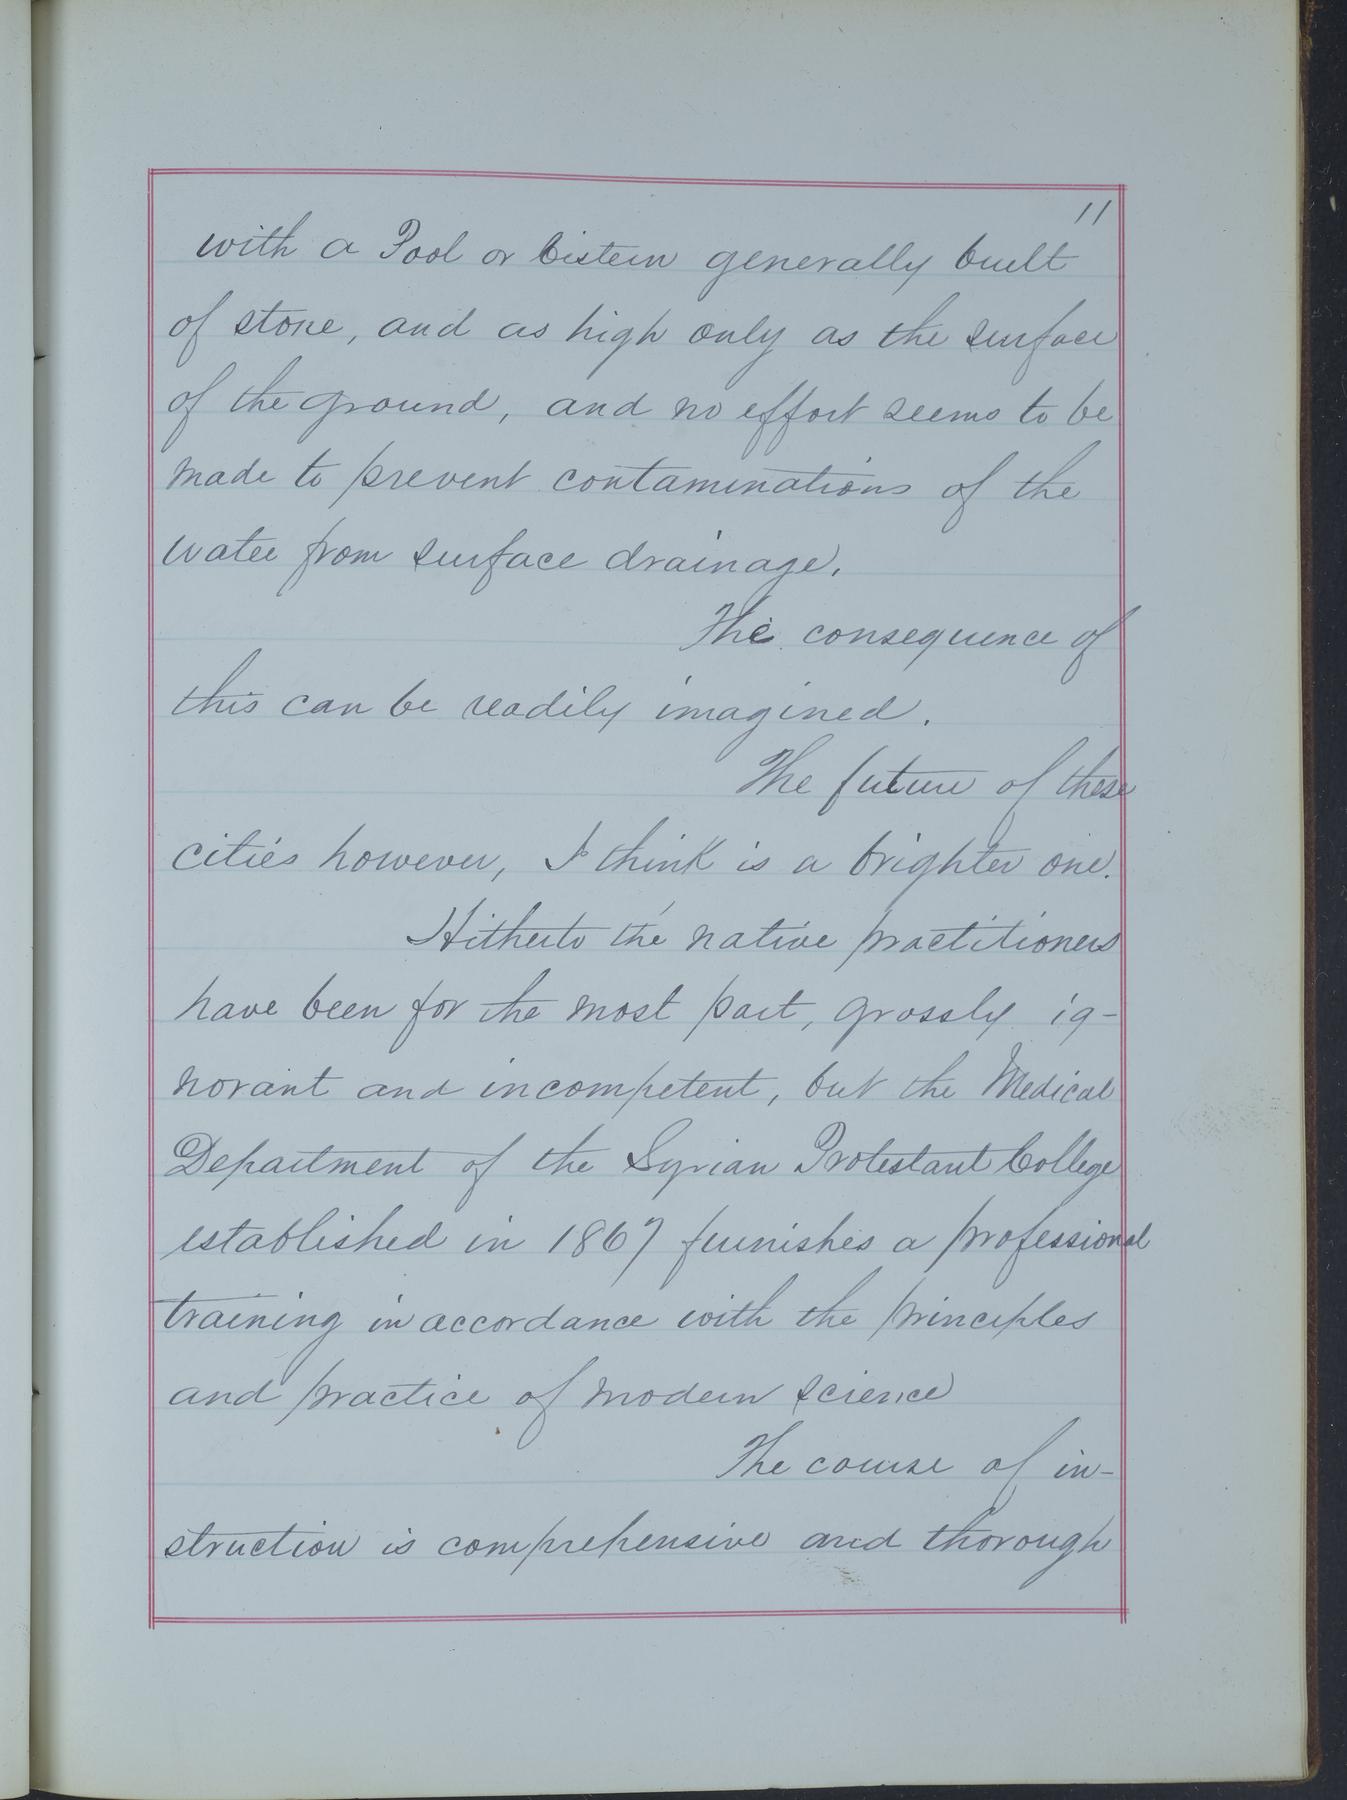 11
with a Pool or Cistern generally built
of stone, and as high only as the surface
of the ground, and no effort seems to be
made to prevent contaminations of the
water from surface drainage.
The consequence of
this can be readily imagined.
The future of these
cities however, I think is a brighter one.
Hitherto the native practitioners
have been for the most part, grossly ig-
norant and incompetent, but the Medical
Department of the Syrian Protestant College
established in 1867 furnishes a professional
training in accordance with the principles
and practice of modern science
The course of in-
struction is comprehensive and thorough